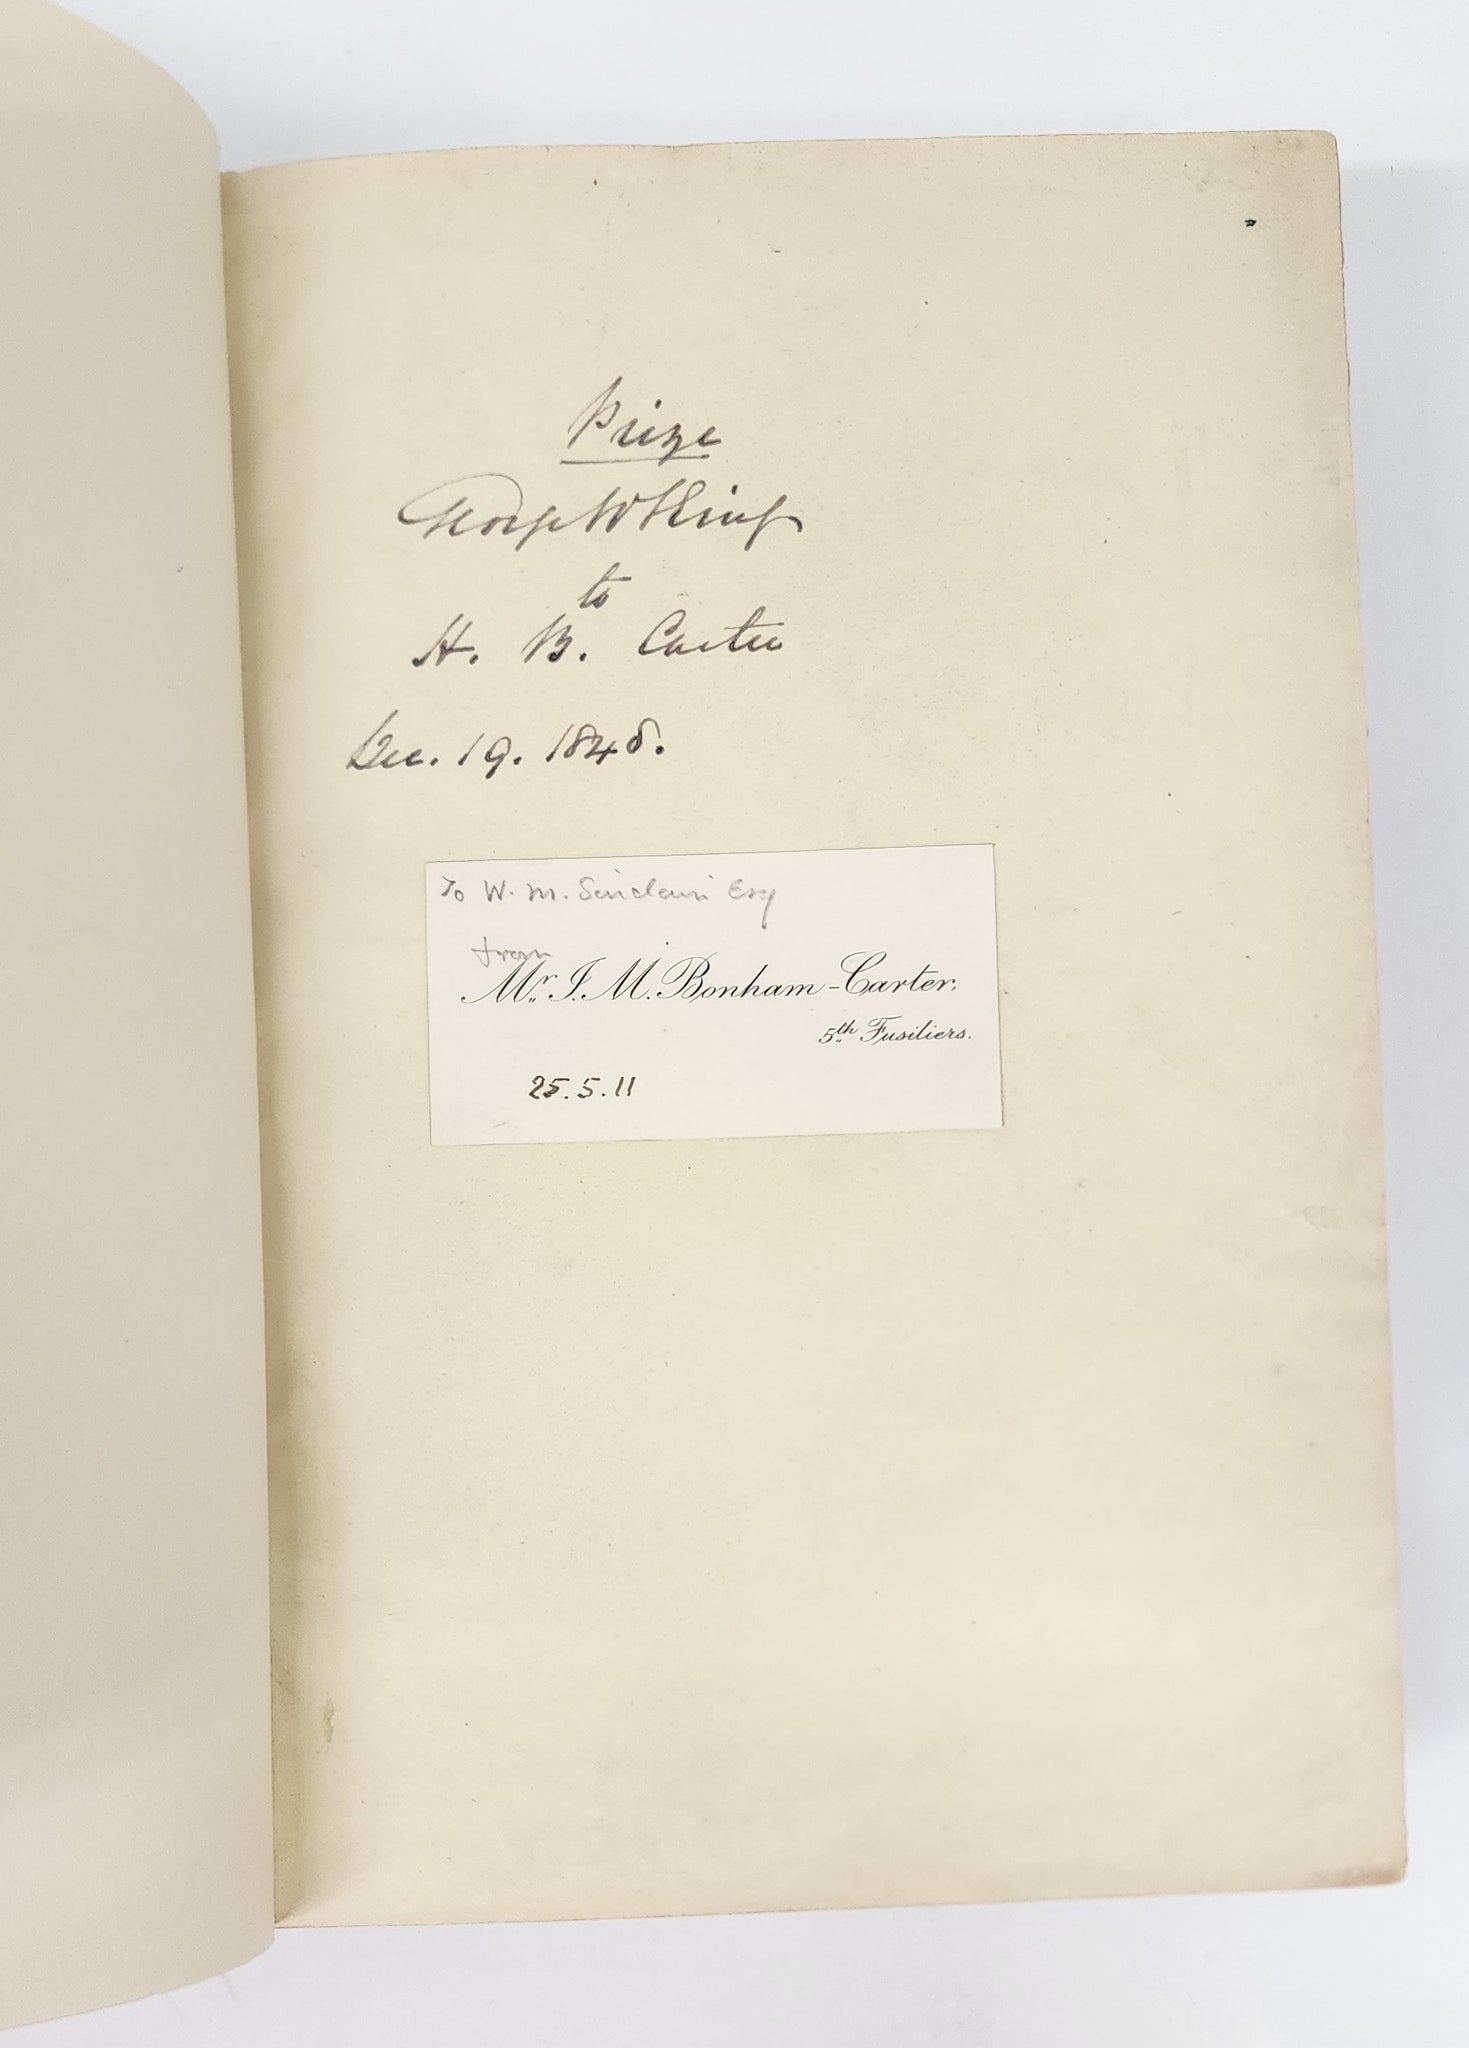 Prize
George W King
to
H. B. Carter
Dec. 19. 1848.
To W. M. Sinclair Esq
from
Mr. I. M. Bonham-Carter.
5th Fusiliers.
25. 5. 11